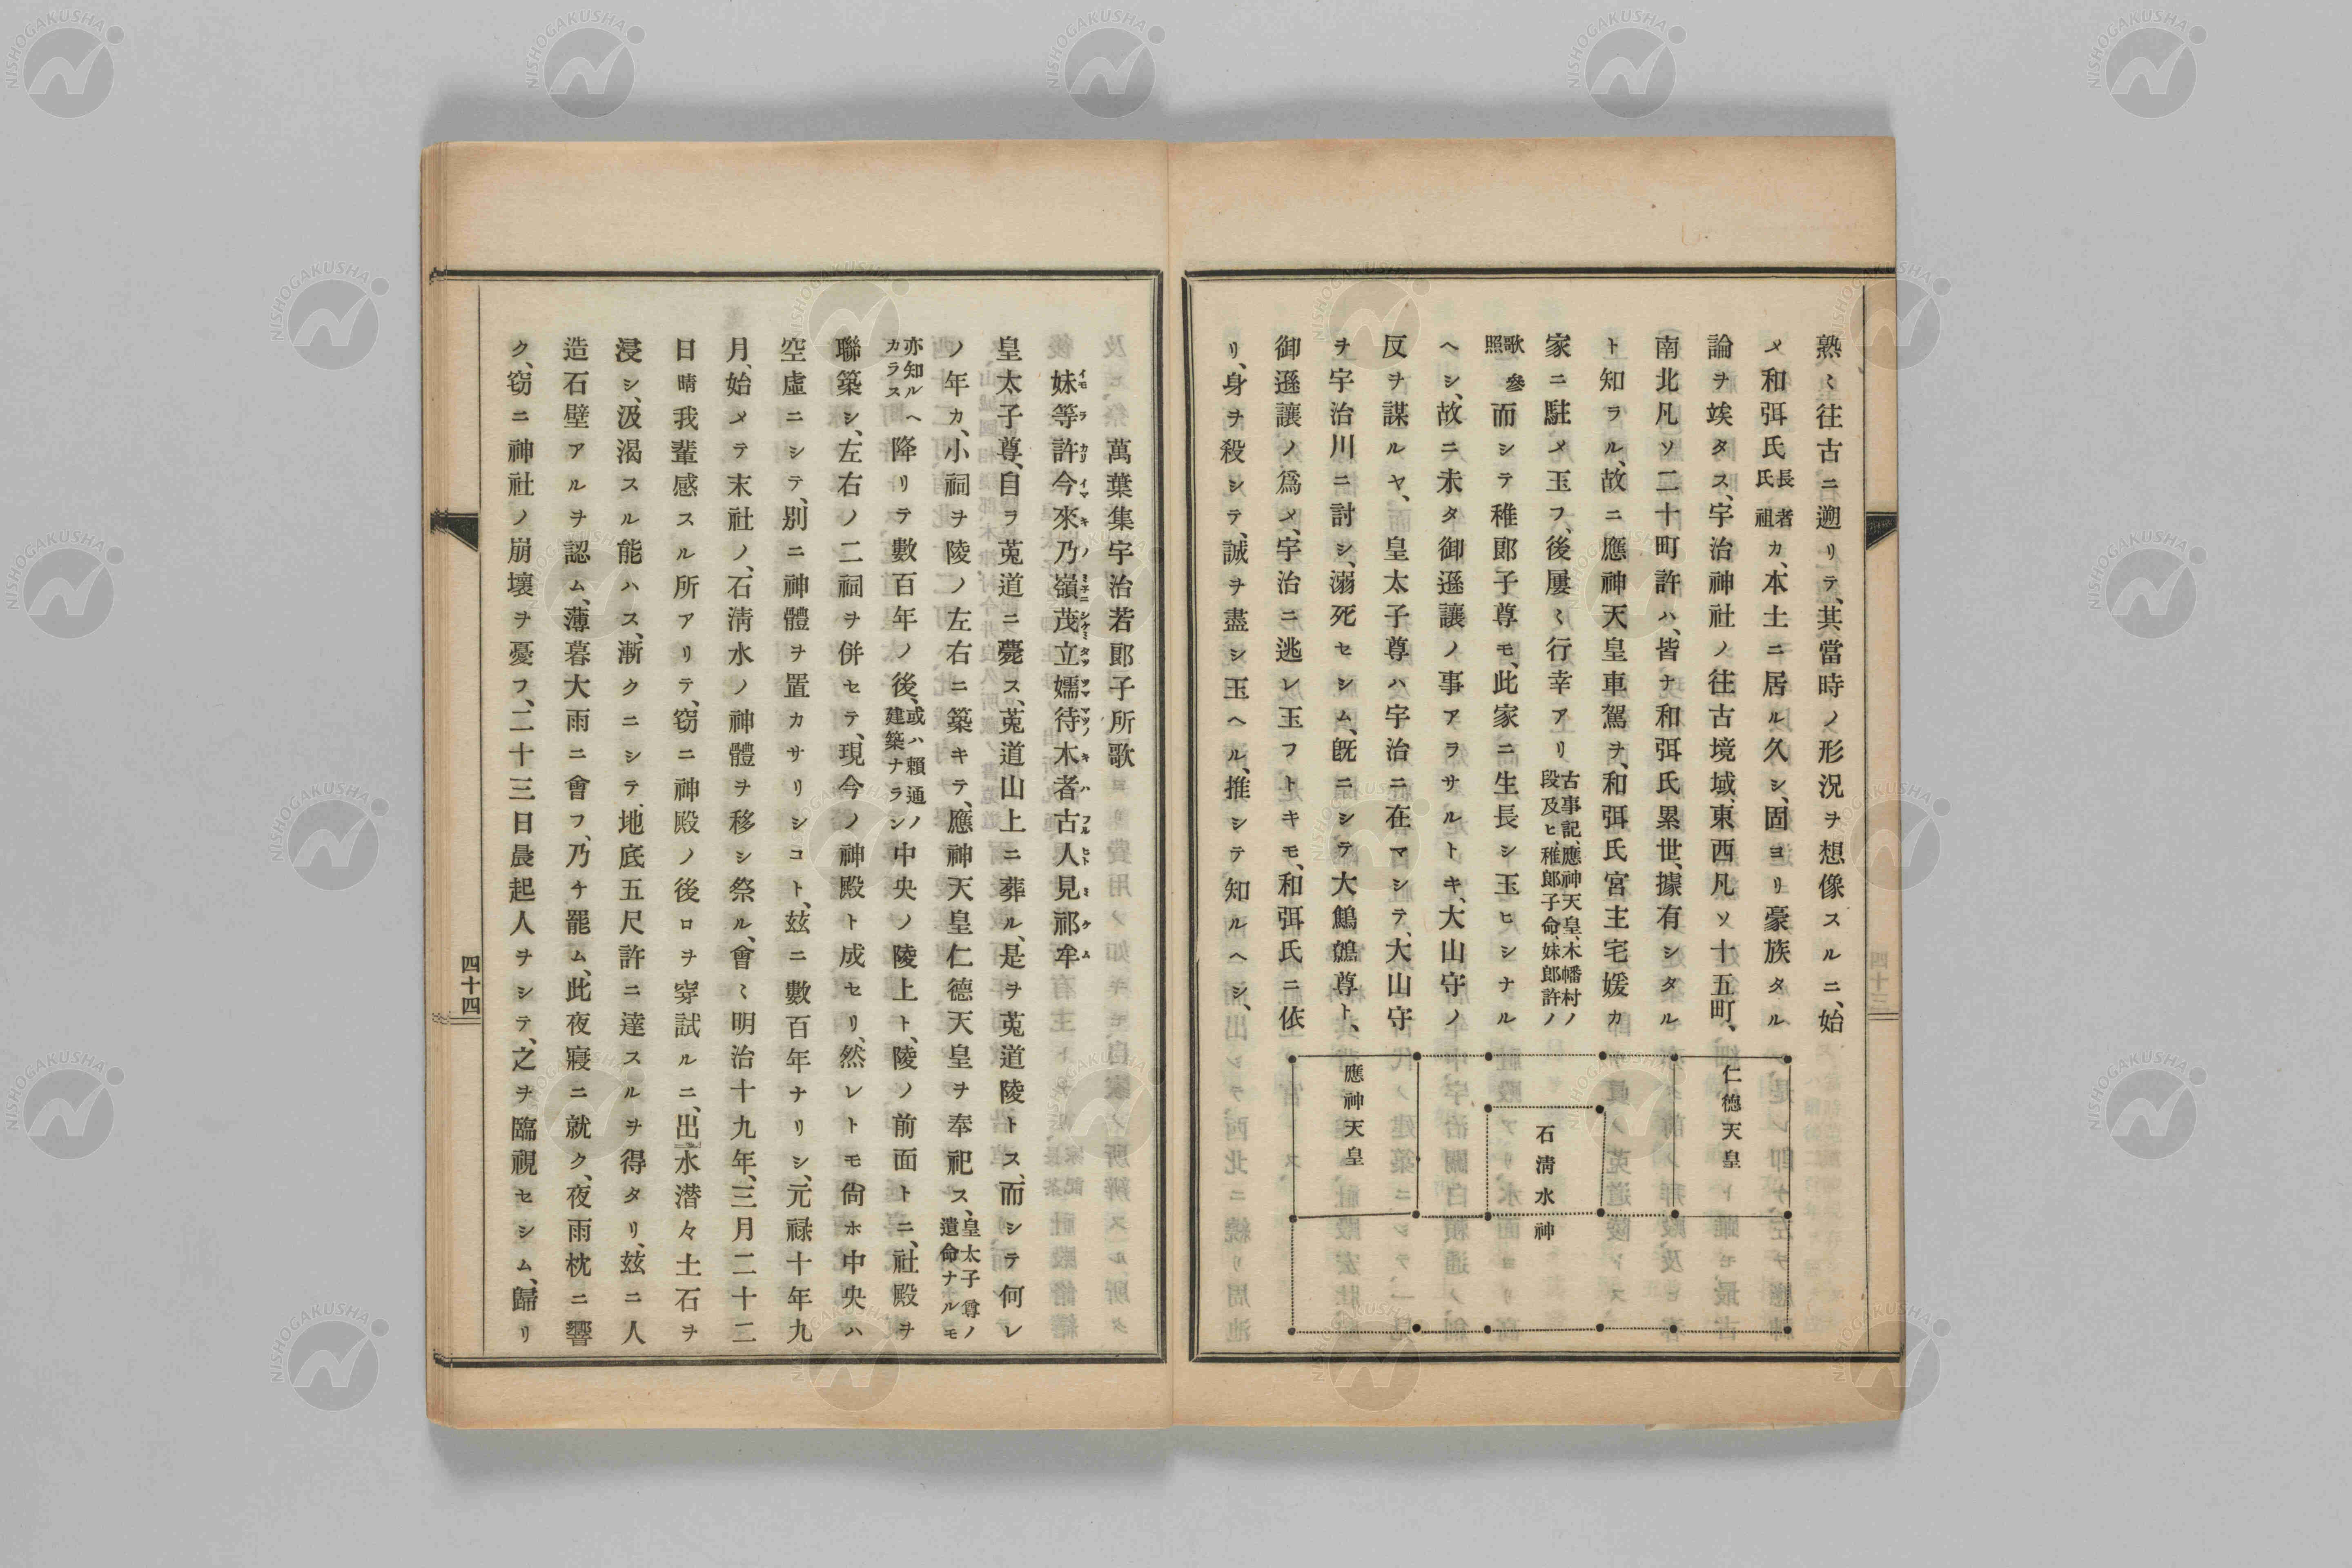 熟〻往古ニ遡リテ、其當時ノ形況ヲ想像スルニ、始
メ和弭氏長者氏祖カ、本土ニ居ル久シ、固ヨリ豪族タル
論ヲ竢タス、宇治神社ノ往古境域、東西凡ソ十五町、
南北凡ソ二十町許ハ、皆ナ和弭氏累世、據有シタル
ト知ラル、故ニ應神天皇車駕ヲ、和弭氏宮主宅媛カ
家ニ駐メ玉フ、後屢〻行幸アリ古事記、應神天皇、木幡村ノ段及ヒ、稚郎子命、妹郎許ノ
歌參照而シテ稚郎子尊モ、此家ニ生長シ玉ヒシナル
ヘシ、故ニ未タ御遜讓ノ事アラサルトキ、大山守ノ
反ヲ謀ルヤ、皇太子尊ハ宇治ニ在マシテ、大山守
ヲ宇治川ニ討シ、溺死セシム、旣ニシテ大鷦鷯尊ト、
御遜讓ノ爲メ、宇治ニ逃レ玉フトキモ、和弭氏ニ依
リ、身ヲ殺シテ、誠ヲ盡シ玉ヘル、推シテ知ルヘシ、
仁德天皇
石淸水神
應神天皇
四十三
萬葉集宇治若郎子所歌
妹等許今來乃嶺茂立嬬待木者古人見祁牟
イモラカリイマキノミネニシケミタツツママツノキハフルヒトミケム
皇太子尊、自ラ莵道ニ薨ス、莵道山上ニ葬ル、是ヲ莵道陵トス、而シテ何レ
ノ年カ、小祠ヲ陵ノ左右ニ築キテ、應神天皇仁德天皇ヲ奉祀ス、皇太子尊ノ遺命ナルモ
亦知ルヘカラス降リテ數百年ノ後、或ハ賴通ノ建築ナラン中央ノ陵上ト、陵ノ前面トニ、社殿ヲ
聯築シ、左右ノ二祠ヲ併セテ、現今ノ神殿ト成セリ、然レトモ尙ホ中央ハ
空虛ニシテ、別ニ神體ヲ置カサリシコト、玆ニ數百年ナリシ、元祿十年九
月、始メテ末社ノ、石淸水ノ神體ヲ移シ祭ル、會〻明治十九年、三月二十二
日晴我輩感スル所アリテ、窃ニ神殿ノ後ロヲ穿試ルニ、出水潜々土石ヲ
浸シ、汲渴スル能ハス、漸クニシテ、地底五尺許ニ達スルヲ得タリ、玆ニ人
造石壁アルヲ認ム、薄暮大雨ニ會フ、乃チ罷ム、此夜寢ニ就ク、夜雨枕ニ響
ク、窃ニ神社ノ崩壞ヲ憂フ、二十三日晨起人ヲシテ、之ヲ臨視セシム、歸リ
四十四
NISHOGAKUSHA